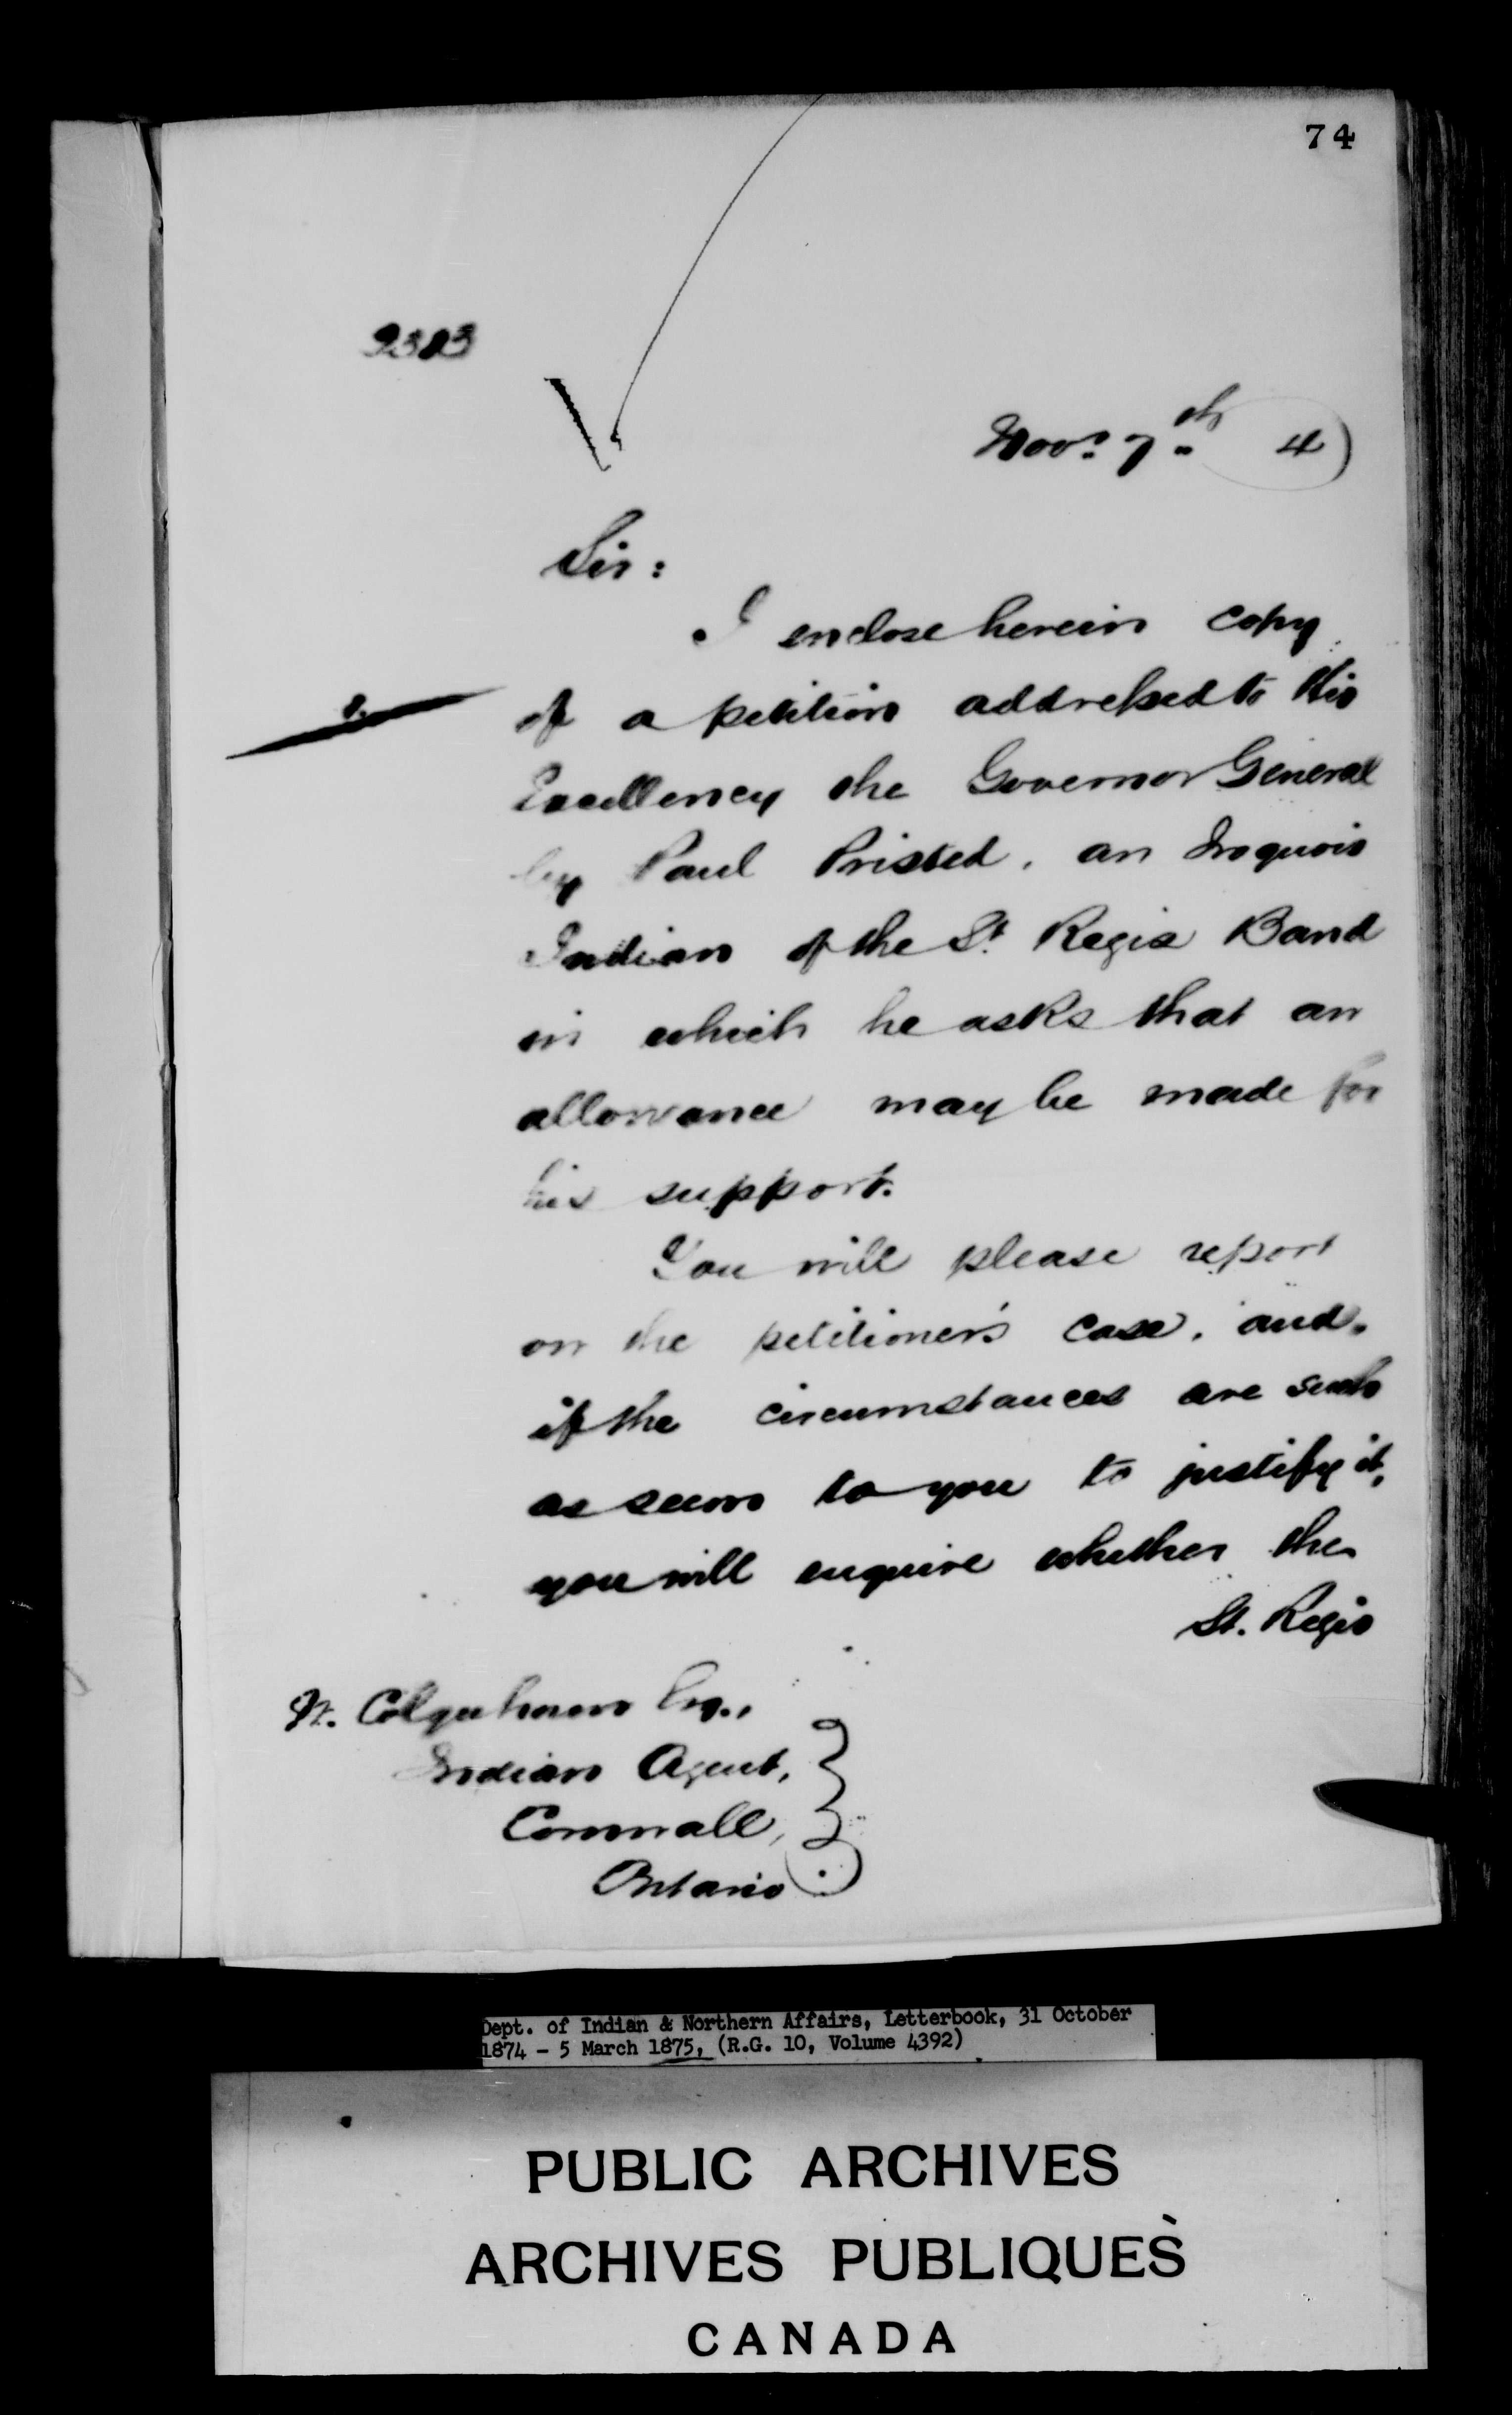 74
Nov. 7th 4
Sir:
I enclose herein copy
of a petition addressed to His
Excellency the Governor General
by Paul Pristed, an Iroquois
Indian of the St. Regis Band
in which he asks that an
allowance may be made for
his support.
You will please report
on the petitioner's case, and,
if the circumstances are such
as seem to you to justify it,
you will enquire whether the
St. Regis
Colquhoun Esq.,
Indian Agent,
Cornwall,
Ontario
Dept. of Indian & Northern Affairs, Letterbook, 31 October
1874 - 5 March 1875, (R.G. 10, Volume 4392)
PUBLIC ARCHIVES
ARCHIVES PUBLIQUES
CANADA